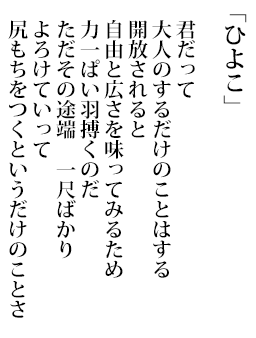 「ひよこ」
君だって
大人のするだけのことはする
開放されると
自由と広さを味ってみるため
力一ぱい羽搏くのだ
ただその途端　一尺ばかり
よろけていって
尻もちをつくというだけのことさ